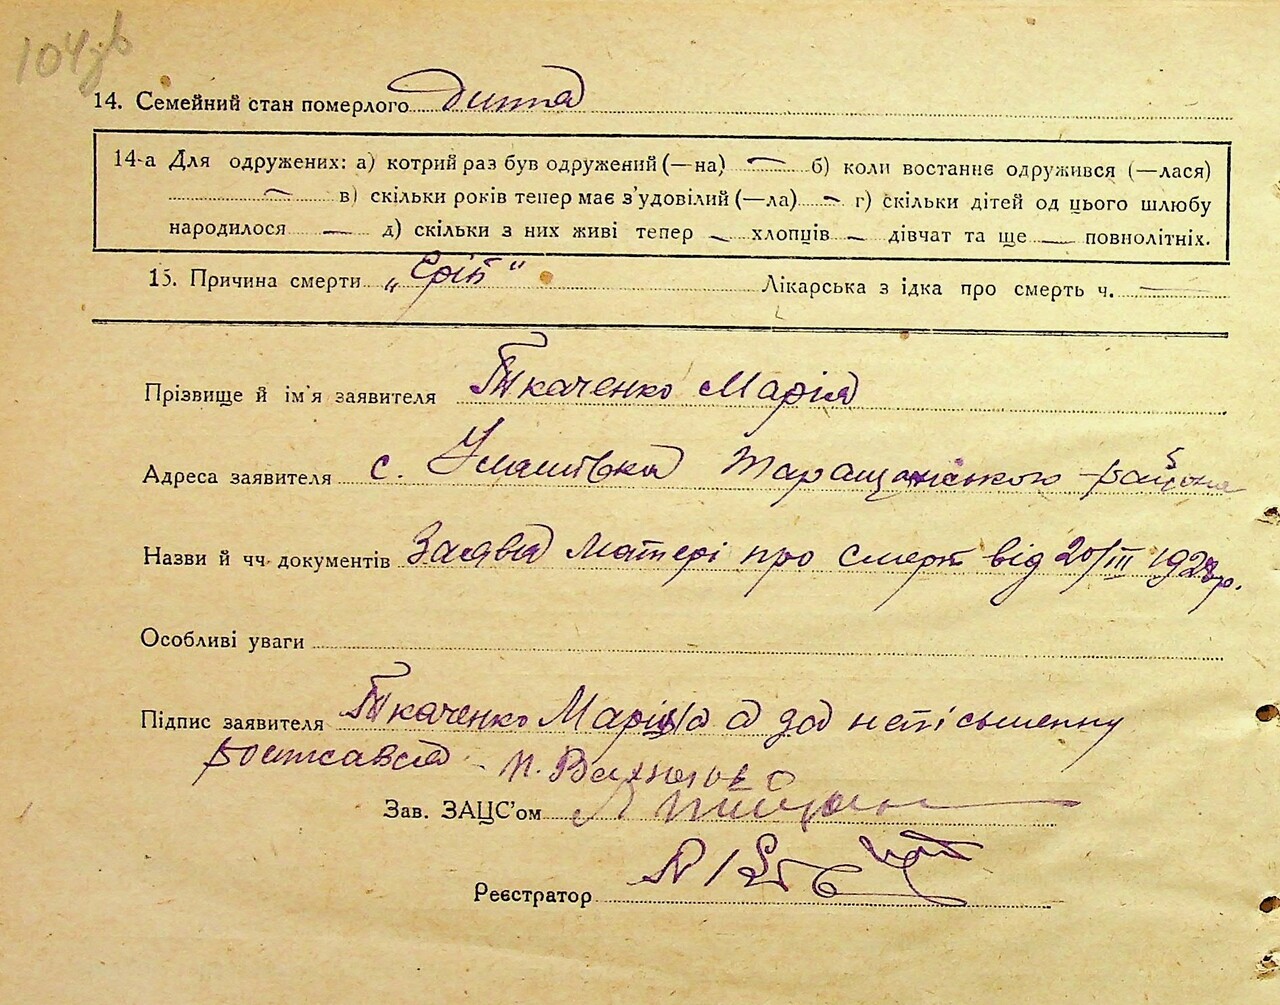 104зв
14. Семейний стан померлого дитя
14-а Для одружених: а) котрий раз був одружений (—на) — б) коли востаннє одружився (—лася)
— в) скільки років тепер має з'удовілий (—ла) — г) скільки дітей од цього шлюбу
народилося — д) скільки з них живі тепер — хлопців — дівчат та ще — повнолітніх.
15. Причина смерти „Гріп“ Лікарська з ідка про смерть ч. —
Прізвище й ім'я заявителя Ткаченко Марія
Адреса заявителя с. Улашівка Таращанського района
Назви й чч. документів Заява матері про смерт від 20/III 1928р.
Особливі уваги
Підпис заявителя Ткаченко Марія а за неписьменну
Зав. ЗАЦС'ом
Реєстратор